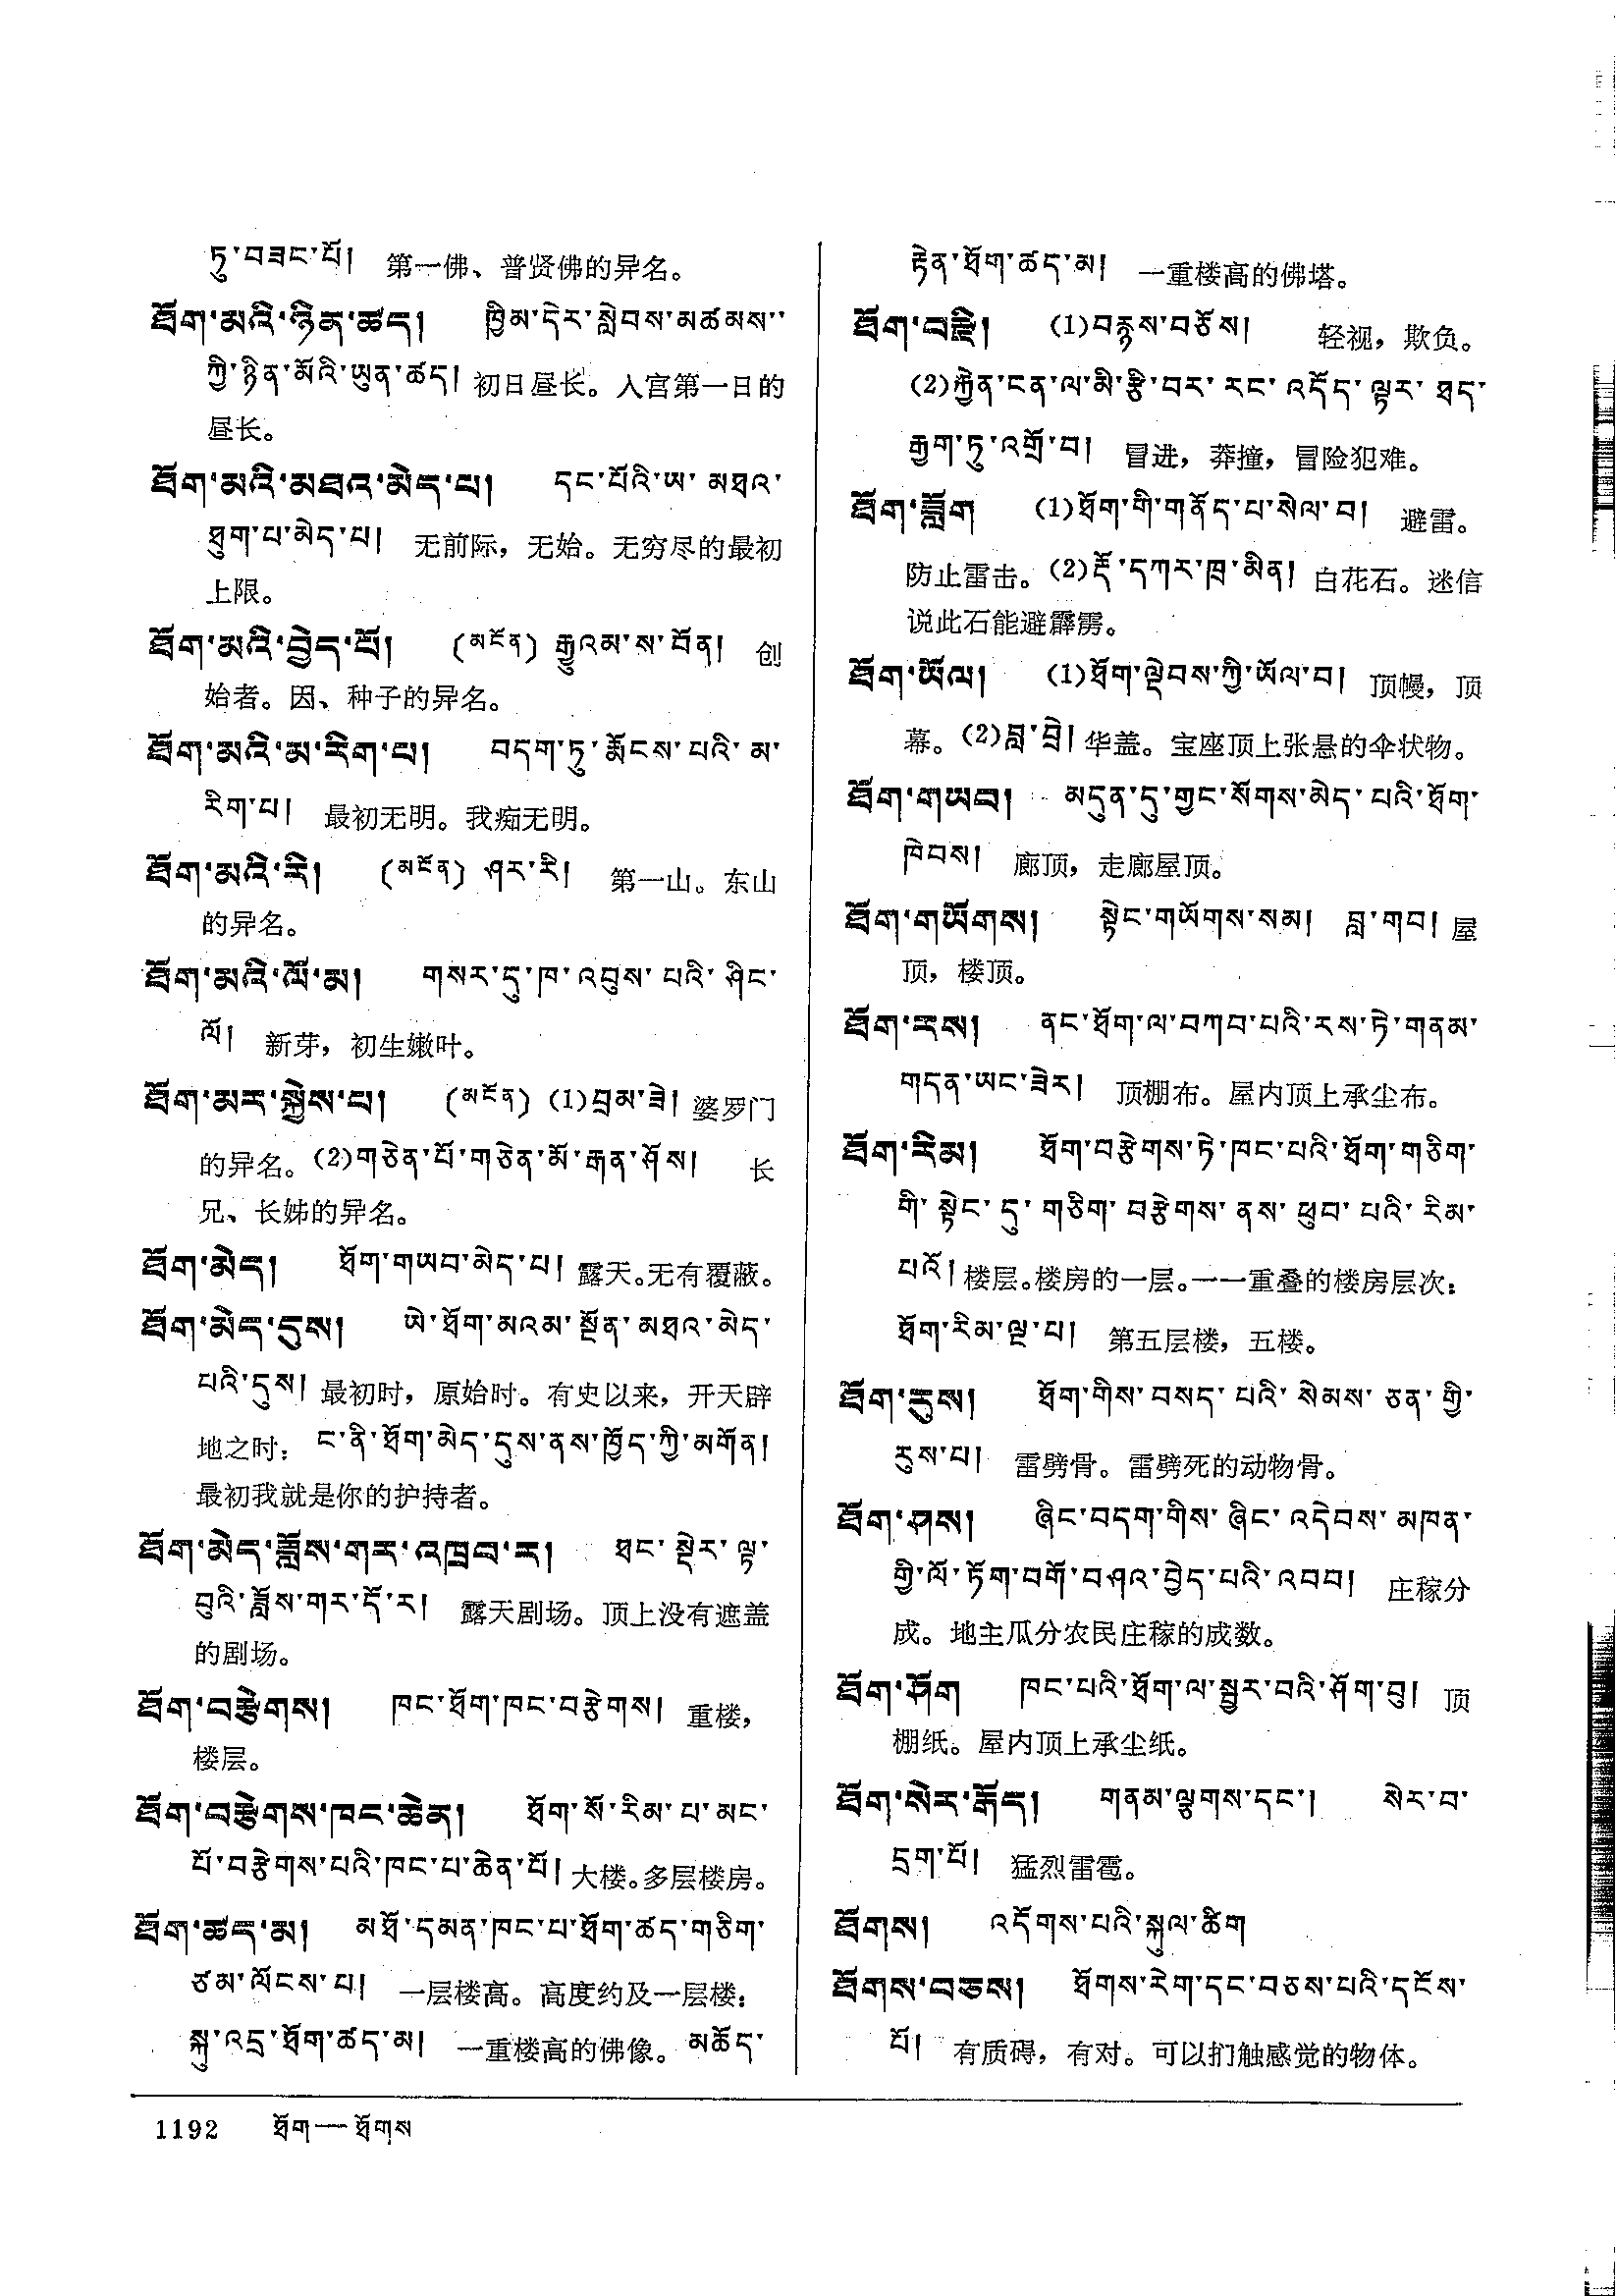 ཏུ་བཟང་པོ། 第一佛、普贤佛的异名。
ཐོག་མའི་ཉིན་ཚད། ཁྱིམ་དེར་སླེབས་མཚམས་
ཀྱི་ཉིན་མོའི་ཡུན་ཚད། 初日昼长。入宫第一日的
昼长。
ཐོག་མའི་མཐའ་མེད་པ། དང་པོའི་ཡ་མཐའ་
ཐུག་པ་མེད་པ། 无前际，无始。无穷尽的最初
上限。
ཐོག་མའི་བྱེད་པོ། (མངོན) རྒྱུའམ་ས་བོན། 创
始者。因、种子的异名。
ཐོག་མའི་མ་རིག་པ། བདག་ཏུ་རྨོངས་པའི་མ་
རིག་པ། 最初无明。我痴无明。
ཐོག་མའི་རི། (མངོན) ཤར་རི། 第一山。东山
的异名。
ཐོག་མའི་ལོ་མ། གསར་དུ་ཁ་འབུས་པའི་ཤིང་
ལོ། 新芽，初生嫩叶。
ཐོག་མར་སྐྱེས་པ། (མངོན) (1)བྲམ་ཟེ། 婆罗门
的异名。(2)གཅེན་པོ་གཅེན་མོ་རྒན་ཤོས། 长
兄、长姊的异名。
ཐོག་མེད། ཐོག་གཡབ་མེད་པ། 露天。无有覆蔽。
ཐོག་མེད་དུས། ཡེ་ཐོག་མའམ་སྔོན་མཐའ་མེད་
པའི་དུས། 最初时，原始时。有史以来，开天辟
地之时：ང་ནི་ཐོག་མེད་དུས་ནས་ཁྱོད་ཀྱི་མགོན།
最初我就是你的护持者。
ཐོག་མེད་ཟློས་གར་འཁྲབ་ར། ཐང་སྡེར་ལྟ་
བུའི་ཟློས་གར་དོ་ར། 露天剧场。顶上没有遮盖
的剧场。
ཐོག་བརྩེགས། ཁང་ཐོག་ཁང་བརྩེགས། 重楼，
楼层。
ཐོག་བརྩེགས་ཁང་ཆེན། ཐོག་སོ་རིམ་པ་མང་
པོ་བརྩེགས་པའི་ཁང་པ་ཆེན་པོ། 大楼。多层楼房。
ཐོག་ཚད་མ། མཐོ་དམན་ཁང་པ་ཐོག་ཚད་གཅིག་
ཙམ་ལོངས་པ། 一层楼高。高度约及一层楼：
སྐུ་འདྲ་ཐོག་ཚད་མ། 一重楼高的佛像。མཆོད་
རྟེན་ཐོག་ཚད་མ། 一重楼高的佛塔。
ཐོག་བརྫི། (1)བརྙས་བཅོས། 轻视，欺负。
(2)རྐྱེན་ངན་ལ་མི་རྩི་བར་རང་འདོད་ལྟར་ཐད་
རྒྱག་ཏུ་འགྲོ་བ། 冒进，莽撞，冒险犯难。
ཐོག་ཟློག (1)ཐོག་གི་གནོད་པ་སེལ་བ། 避雷。
防止雷击。(2)རྡོ་དཀར་ཁྲ་མིན། 白花石。迷信
说此石能避霹雳。
ཐོག་ཡོལ། (1)ཐོག་ལྡེབས་ཀྱི་ཡོལ་བ། 顶幔，顶
幕。(2)བླ་བྲེ། 华盖。宝座顶上张悬的伞状物。
ཐོག་གཡབ། མདུན་དུ་གྱང་སོགས་མེད་པའི་ཐོག་
ཁེབས། 廊顶，走廊屋顶。
ཐོག་གཡོགས། སྟེང་གཡོགས་སམ། བླ་གབ། 屋
顶，楼顶。
ཐོག་རས། ནང་ཐོག་ལ་བཀབ་པའི་རས་ཏེ་གནམ་
གདན་ཡང་ཟེར། 顶棚布。屋内顶上承尘布。
ཐོག་རིམ། ཐོག་བརྩེགས་ཏེ་ཁང་པའི་ཐོག་གཅིག་
གི་སྟེང་དུ་གཅིག་བརྩེགས་ནས་ཕུབ་པའི་རིམ་
པའོ། 楼层。楼房的一层。一一重叠的楼房层次：
ཐོག་རིམ་ལྔ་པ། 第五层楼，五楼。
ཐོག་རུས། ཐོག་གིས་བསད་པའི་སེམས་ཅན་གྱི་
རུས་པ། 雷劈骨。雷劈死的动物骨。
ཐོག་ཤས། ཞིང་བདག་གིས་ཞིང་འདེབས་མཁན་
གྱི་ལོ་ཏོག་བགོ་བཤའ་བྱེད་པའི་འབབ། 庄稼分
成。地主瓜分农民庄稼的成数。
ཐོག་ཤོག ཁང་པའི་ཐོག་ལ་སྦྱར་བའི་ཤོག་བུ། 顶
棚纸。屋内顶上承尘纸。
ཐོག་སེར་རྒོད། གནམ་ལྕགས་དང་། སེར་བ་
དྲག་པོ། 猛烈雷雹。
ཐོགས། འདོགས་པའི་སྐུལ་ཚིག
ཐོགས་བཅས། ཐོགས་རེག་དང་བཅས་པའི་དངོས་
པོ། 有质碍，有对。可以扪触感觉的物体。
1192 ཐོག—ཐོགས